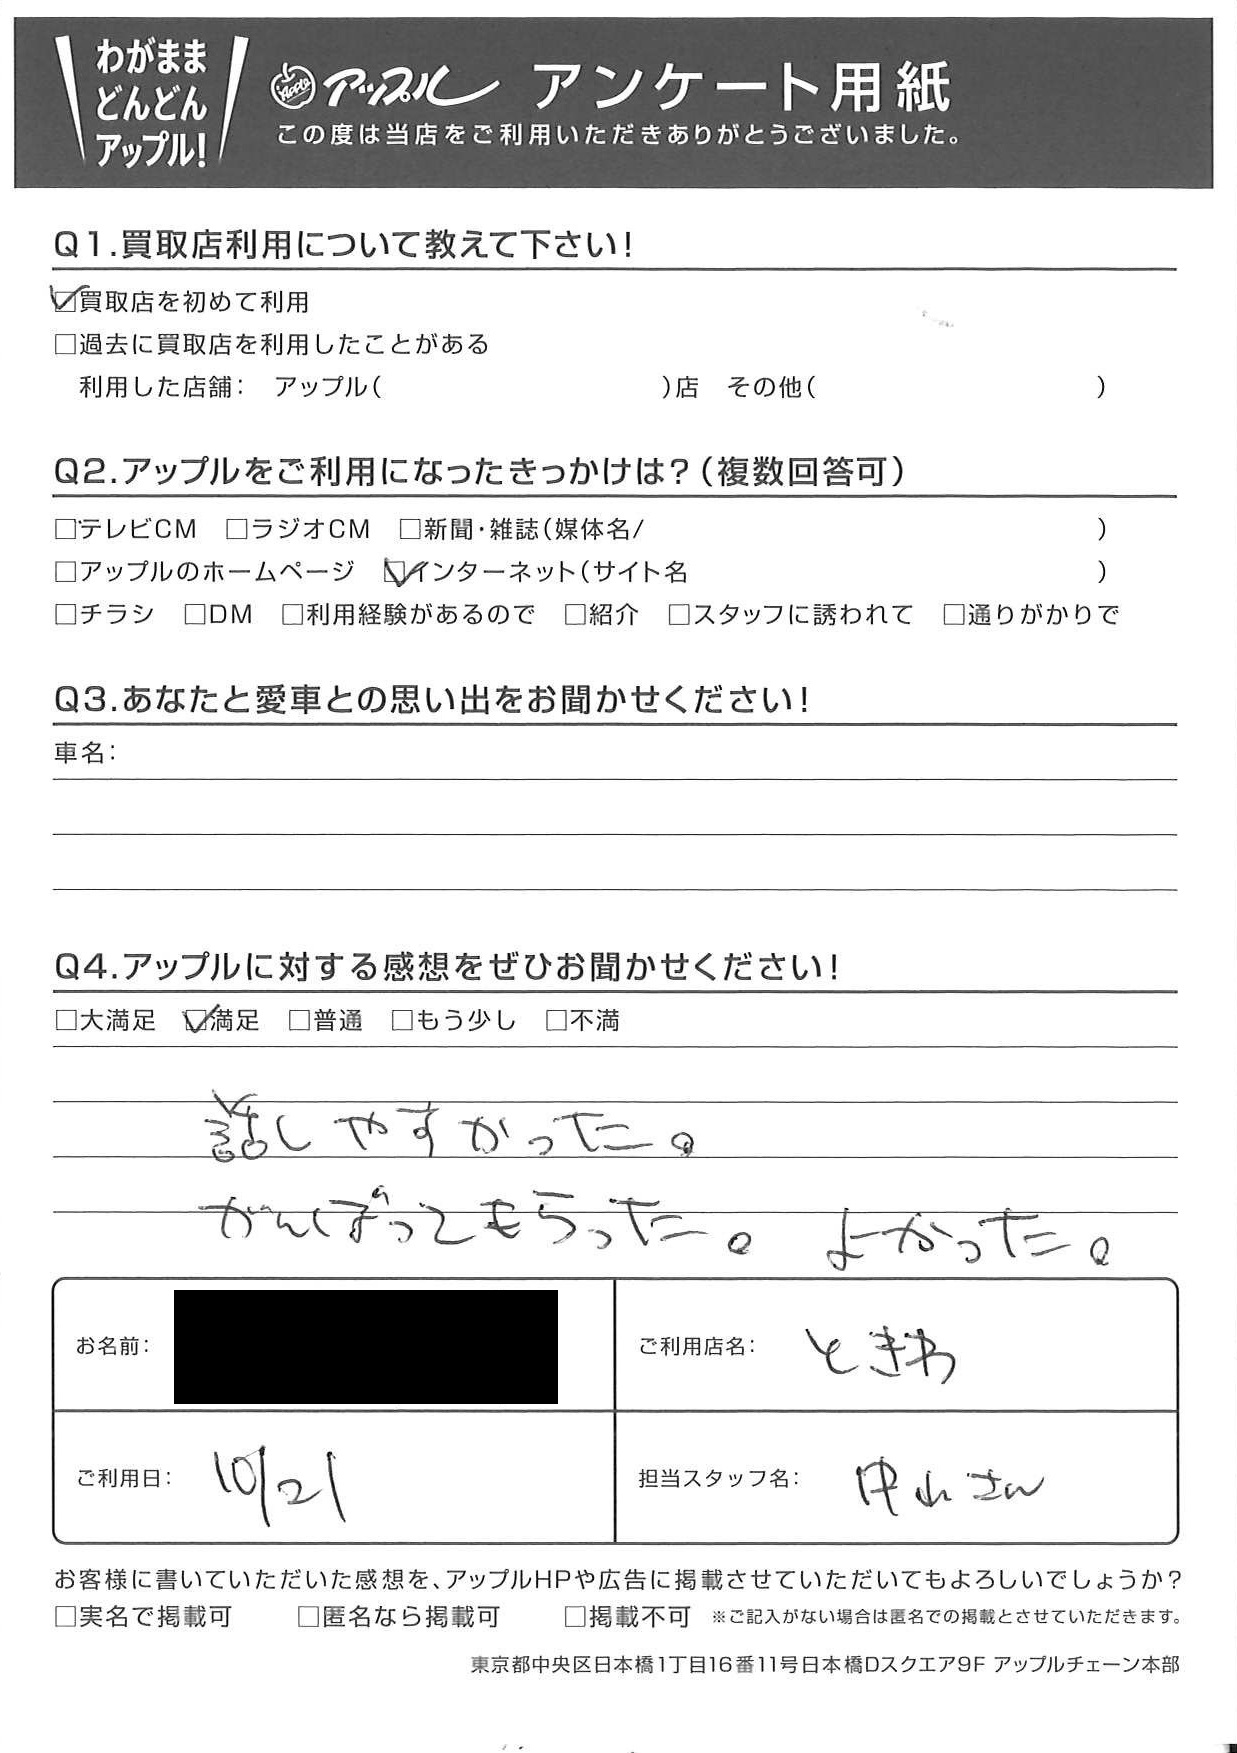 わがまま
どんどん
アップル!
Apple アップル アンケート用紙
この度は当店をご利用いただきありがとうございました。
Q1.買取店利用について教えて下さい!
☑買取店を初めて利用
□過去に買取店を利用したことがある
利用した店舗: アップル( )店 その他( )
Q2.アップルをご利用になったきっかけは?(複数回答可)
□テレビCM □ラジオCM □新聞・雑誌(媒体名/ )
□アップルのホームページ ☑インターネット(サイト名 )
□チラシ □DM □利用経験があるので □紹介 □スタッフに誘われて □通りがかりで
Q3.あなたと愛車との思い出をお聞かせください!
車名:
Q4.アップルに対する感想をぜひお聞かせください!
□大満足 ☑満足 □普通 □もう少し □不満
話しやすかった。
がんばってもらった。 よかった。
お名前:
ご利用店名: ときわ
ご利用日: 10/21
担当スタッフ名: 中山さん
お客様に書いていただいた感想を、アップルHPや広告に掲載させていただいてもよろしいでしょうか?
□実名で掲載可 □匿名なら掲載可 □掲載不可 ※ご記入がない場合は匿名での掲載とさせていただきます。
東京都中央区日本橋1丁目16番11号日本橋Dスクエア9F アップルチェーン本部